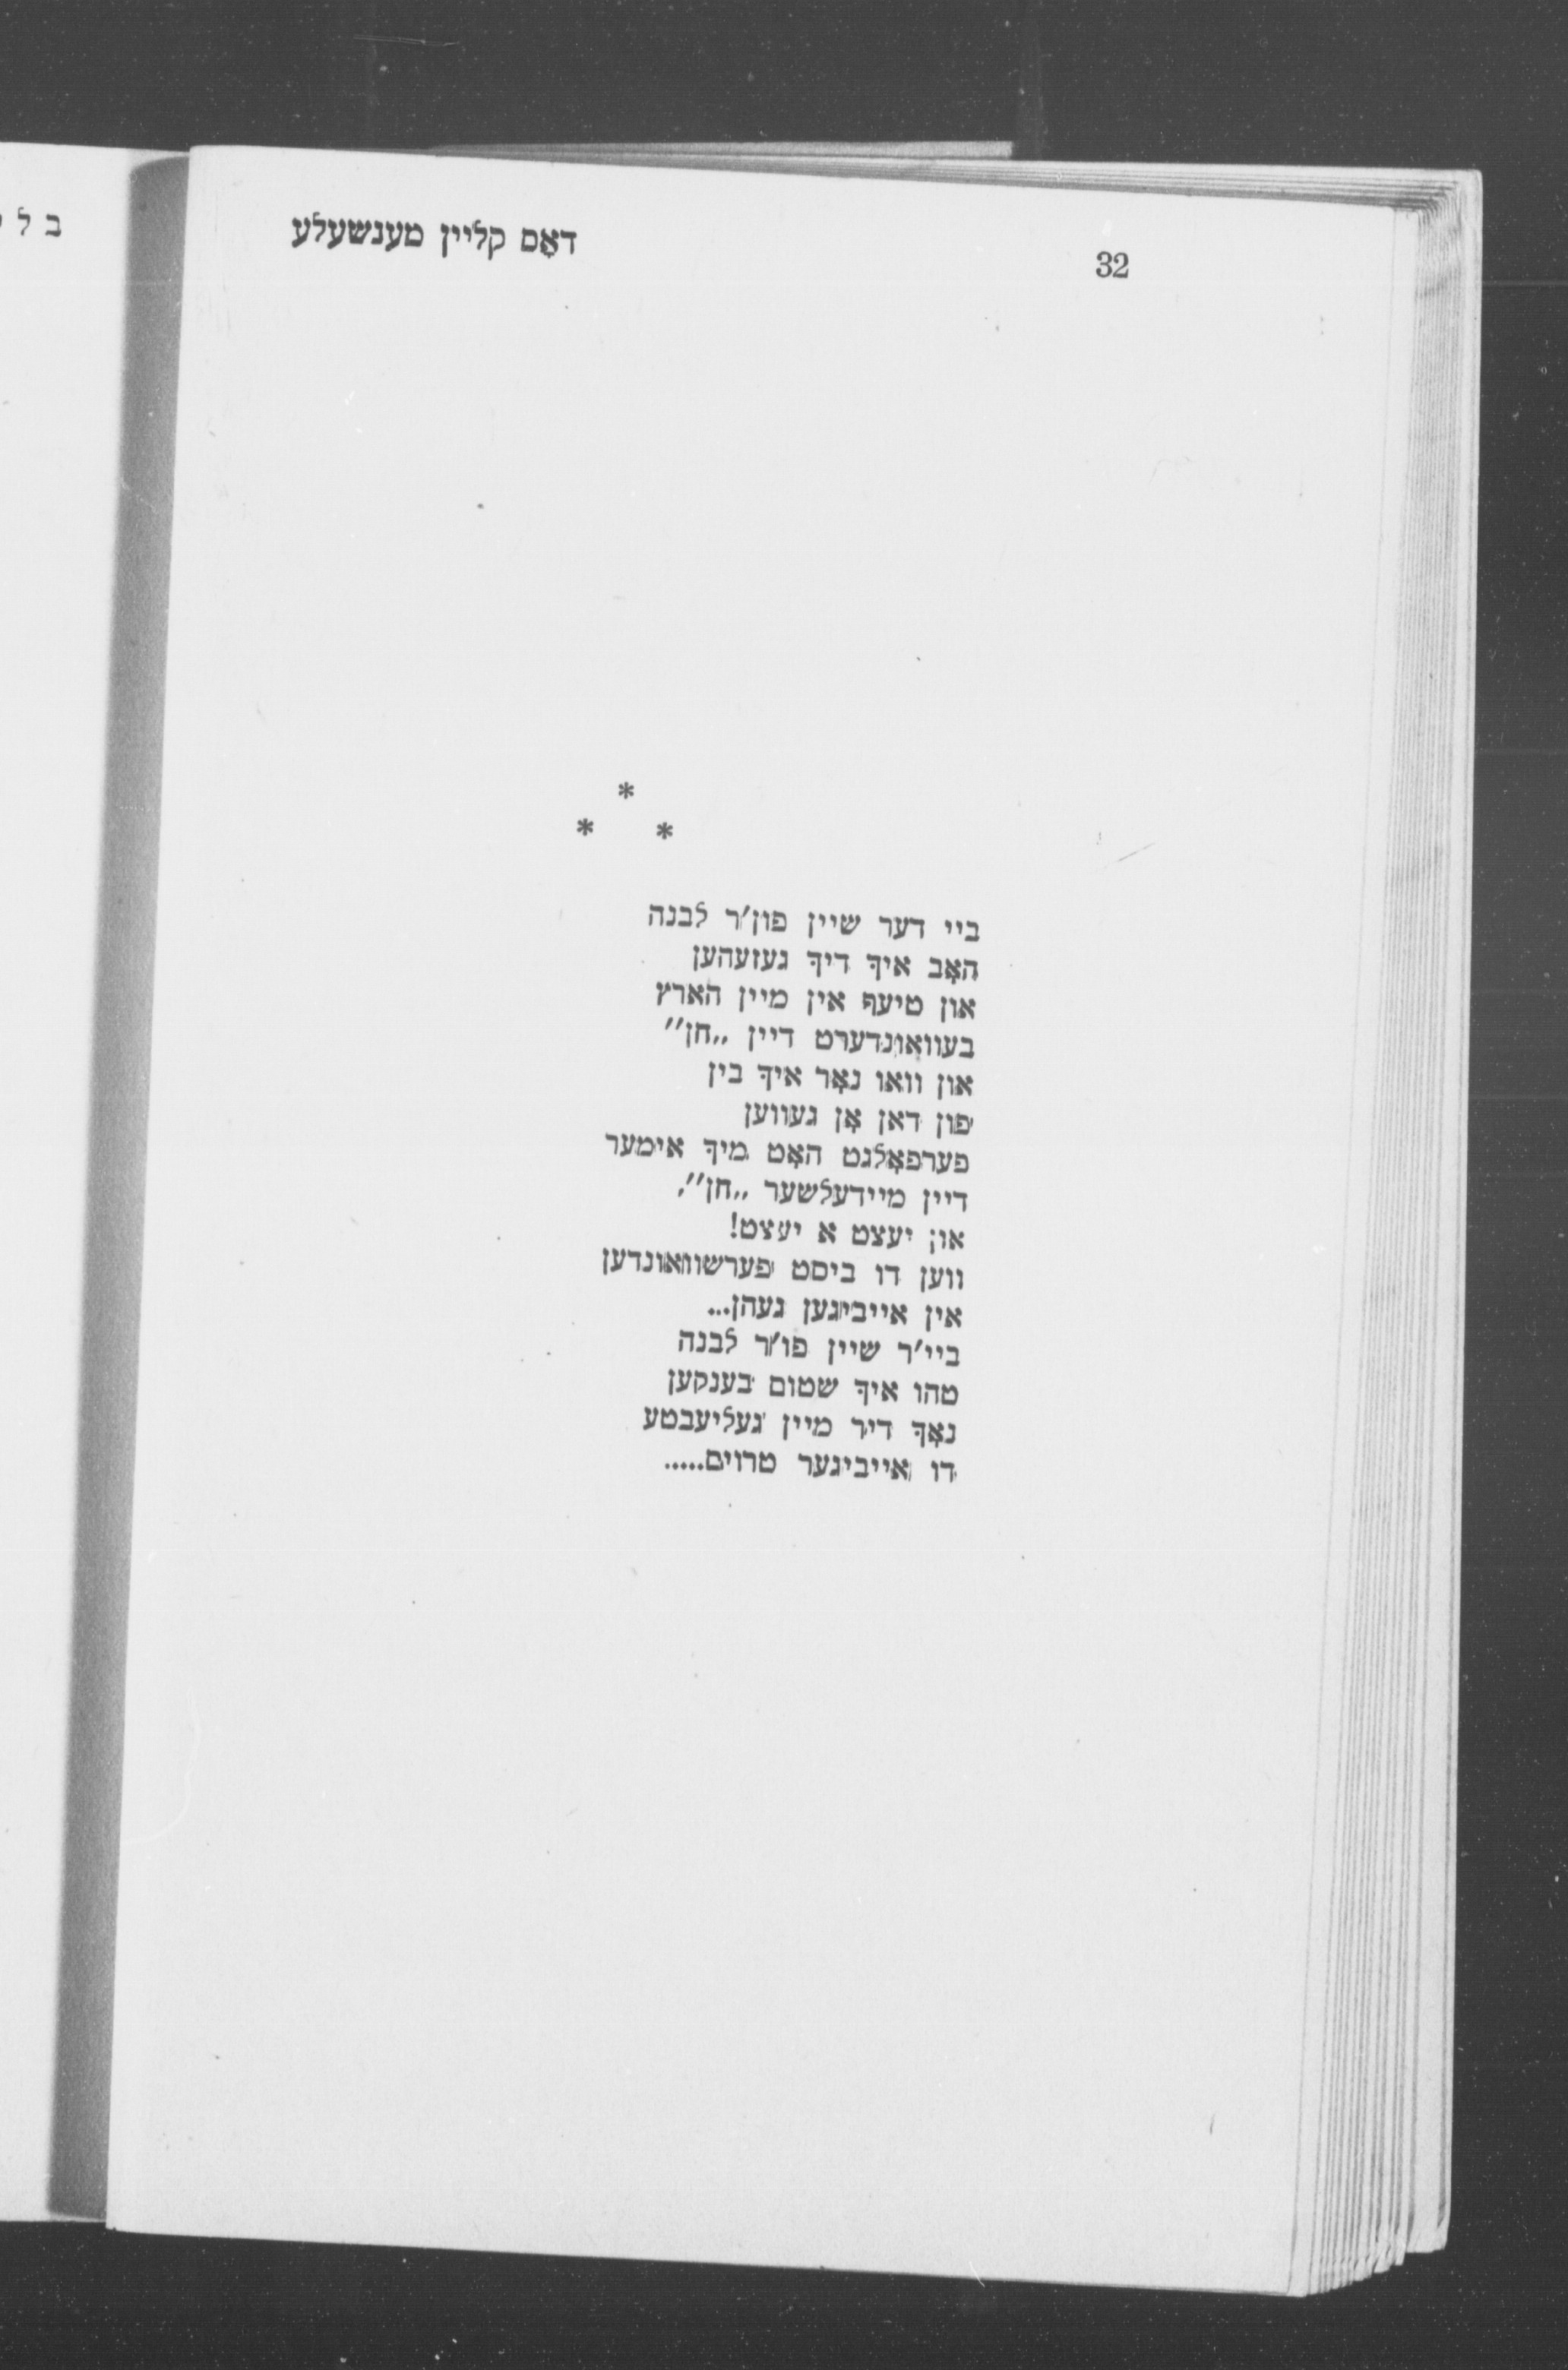 32 דאָס קליין מענשעלע
*
* *
ביי דער שיין פון׳ר לבנה
האָב איך דיך געזעהען
און טיעף אין מיין הארץ
בעוואונדערט דיין „חן״
און וואו נאָר איך בין
פון דאן אָן געווען
פערפאָלגט האָט מיך אימער
דיין מיידעלשער „חן״,
און יעצט א יעצט!
ווען דו ביסט פערשוואונדען
אין אייביגען געהן...
ביי׳ר שיין פו׳ר לבנה
טהו איך שטום בענקען
נאָך דיר מיין געליעבטע
דו אייביגער טרוים.....